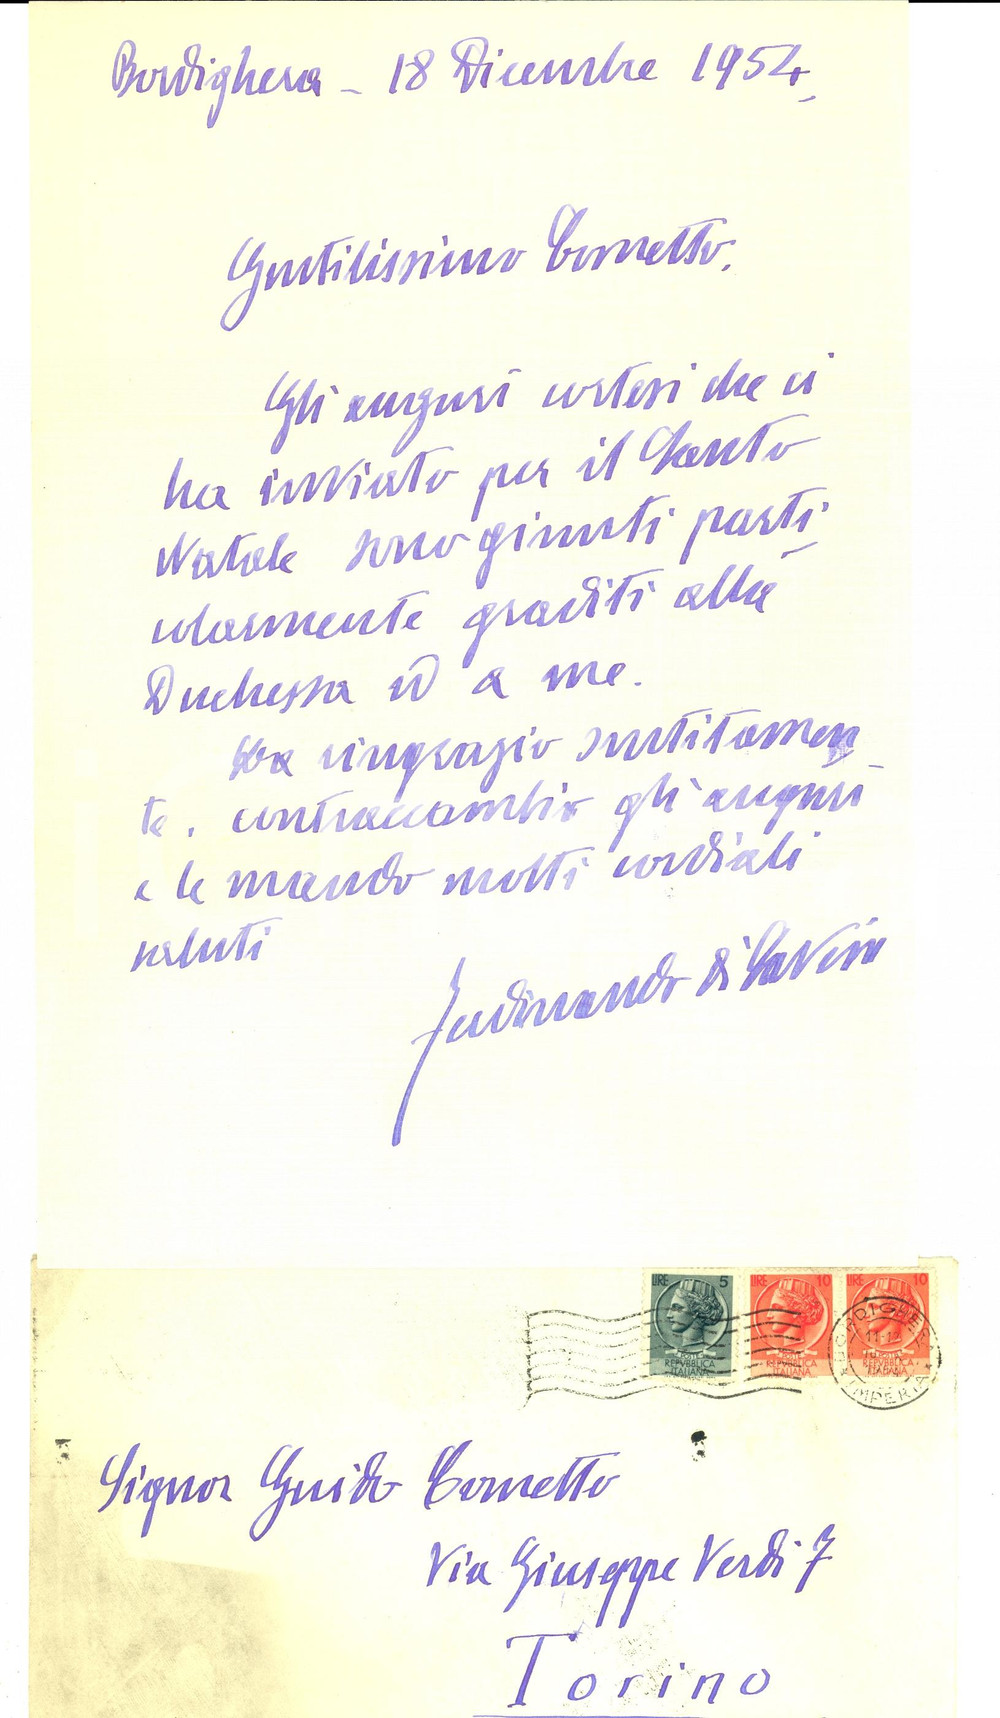 Bordighera - 18 Dicembre 1954.
Gentilissimo Cornetto,
Gli auguri cortesi che ci
ha inviato per il Santo
Natale sono giunti parti-
colarmente graditi alla
Duchessa ed a me.
La ringrazio sentitamen-
te, contraccambio gli auguri
e le mando molti cordiali
saluti
Ferdinando di Savoia
LIRE 5 LIRE 10 LIRE 10
POSTE POSTE
REPVBBLICA REPVBBLICA REPVBBLICA
ITALIANA ITALIANA ITALIANA
BORDIGHERA
IMPERIA
Signor Guido Cornetto
Via Giuseppe Verdi 7
Torino